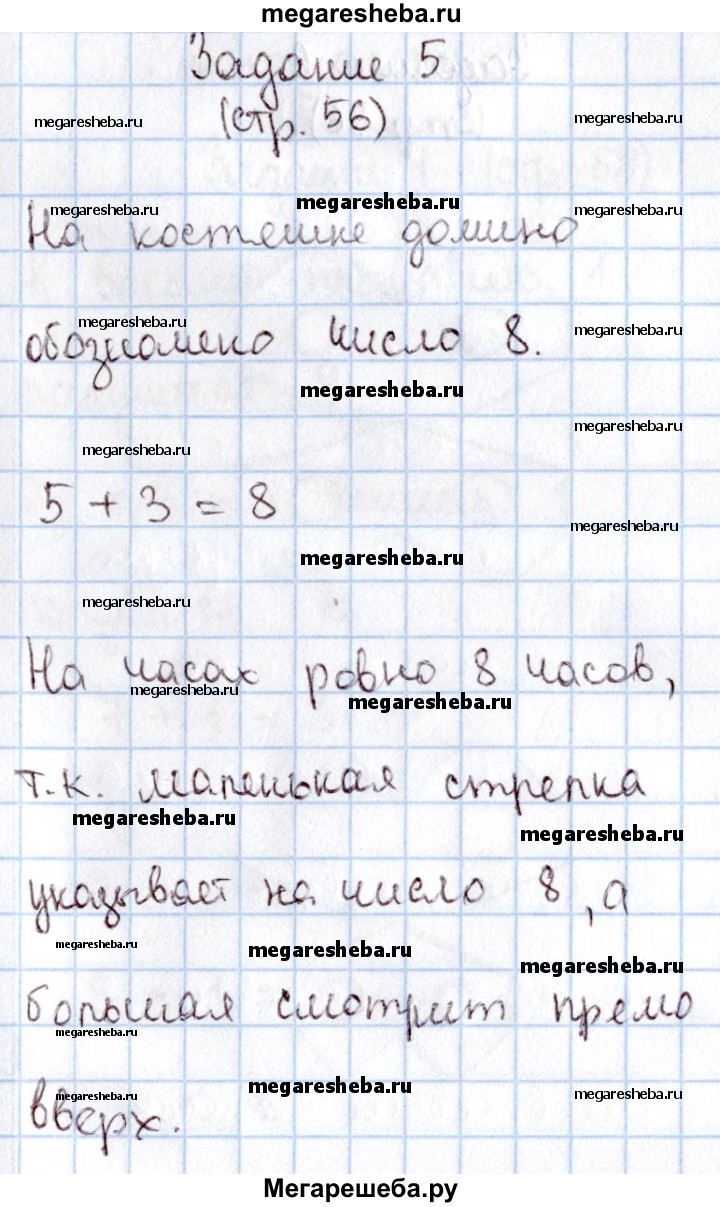 megaresheba.ru
Задание 5
megaresheba.ru
(стр. 56)
megaresheba.ru
megaresheba.ru
megaresheba.ru
megaresheba.ru
На костяшке домино
megaresheba.ru
megaresheba.ru
обозначено число 8.
megaresheba.ru
megaresheba.ru
megaresheba.ru
5 + 3 = 8
megaresheba.ru
megaresheba.ru
megaresheba.ru
На часах ровно 8 часов,
megaresheba.ru
megaresheba.ru
т.к. маленькая стрелка
megaresheba.ru
megaresheba.ru
указывает на число 8, а
megaresheba.ru
megaresheba.ru
megaresheba.ru
большая смотрит прямо
megaresheba.ru
megaresheba.ru
megaresheba.ru
megaresheba.ru
вверх.
Мегарешеба.ру